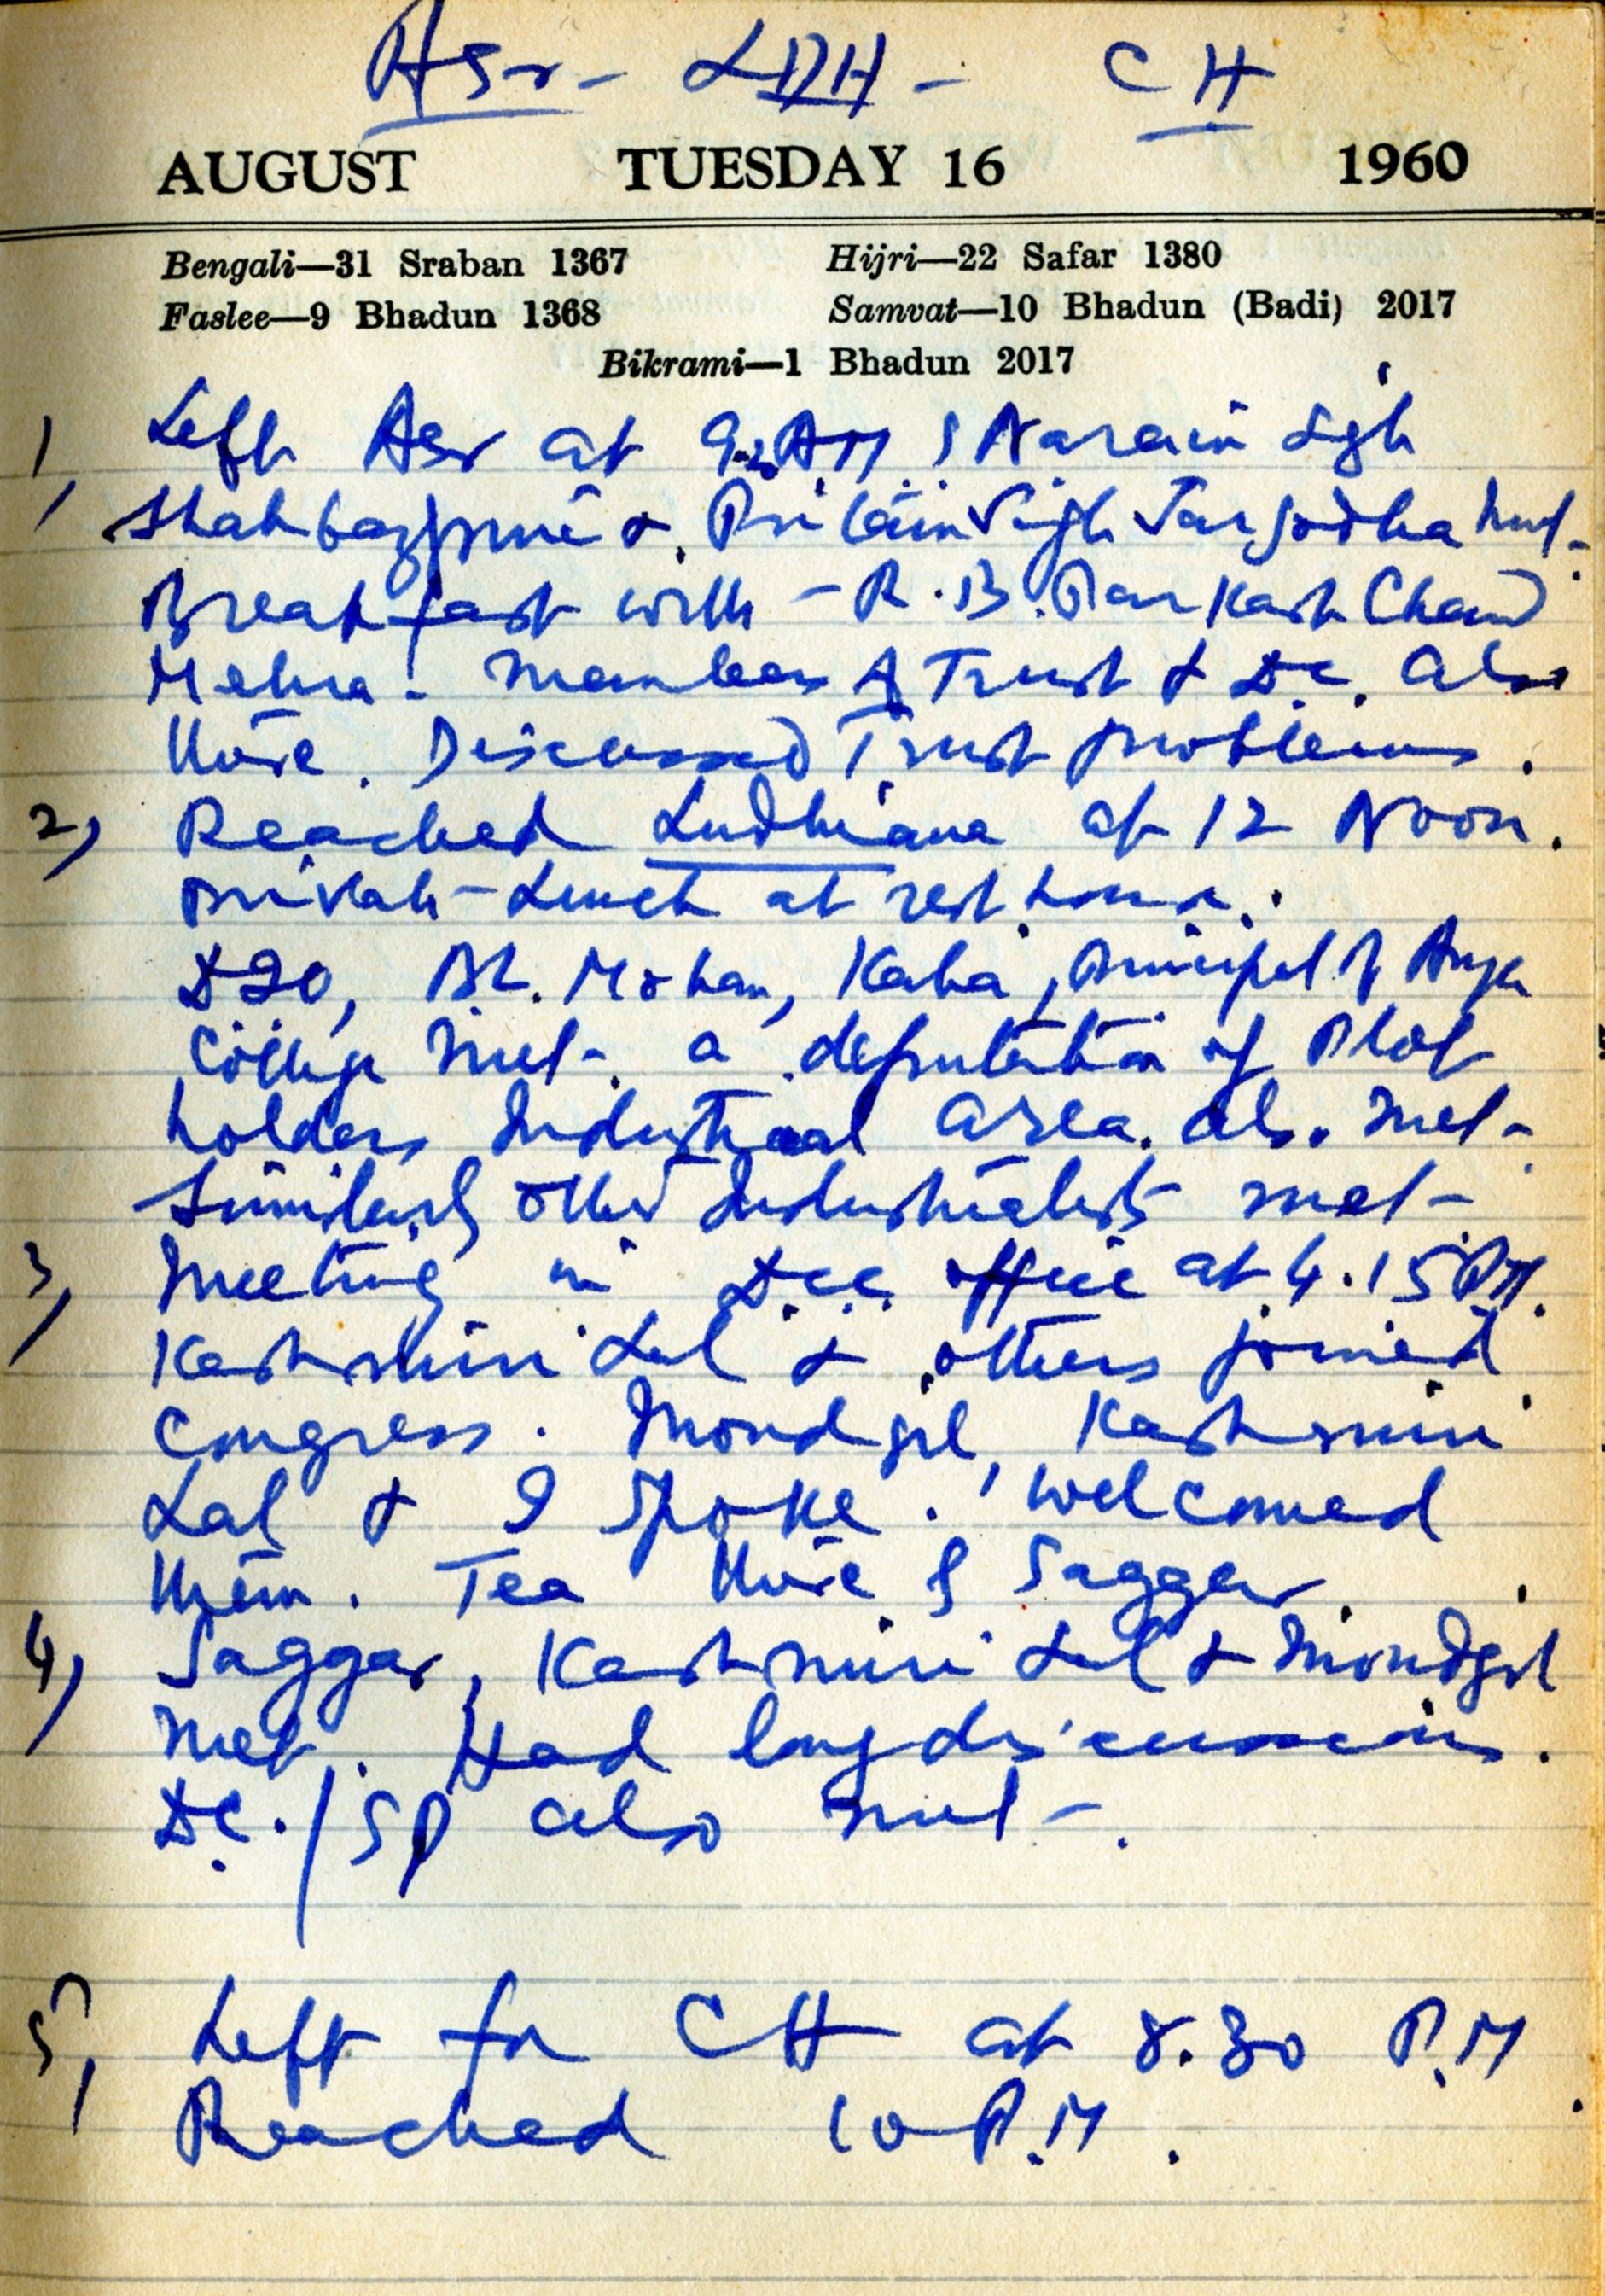 Asr - LDH - CH
AUGUST TUESDAY 16 1960
Bengali—31 Sraban 1367 Hijri—22 Safar 1380
Faslee—9 Bhadun 1368 Samvat—10 Bhadun (Badi) 2017
Bikrami—1 Bhadun 2017
1, Left Asr at A M S Narain Sgh
Shahbazpuri & Pritam Singh Sargodha met-
Breakfast with - R.B. Parkash Chand
Mehra. Members of Trust & D.C. also
there. Discussed Trust problems.
2, Reached Ludhiana at 12 Noon.
private Lunch at rest house.
Mohan, Principal of Arya
College met. a deputation of Plot
holders Industrial area. also met-
Similarly other Industrialists met-
3, Meeting in D.C.C. office at 4.15 P.M.
Kashmiri Lal & others joined
Congress. Mondgil, Kashmiri
Lal & I spoke. welcomed
them. Tea there Saggar
4, Saggar, Kashmiri Lal & Mondgil
met. Had long discussions.
D.C./SP also met-.
5, Left for CH at 8.30 P.M
Reached 10 P.M.